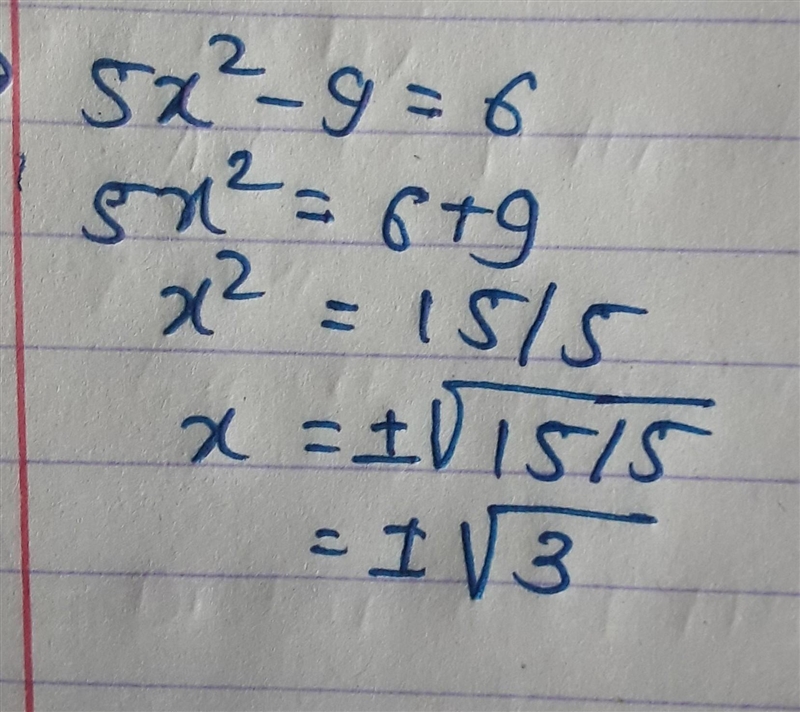 5x² - 9 = 6
5x² = 6+9
x² = 15/5
x = ±√15/5
= ±√3